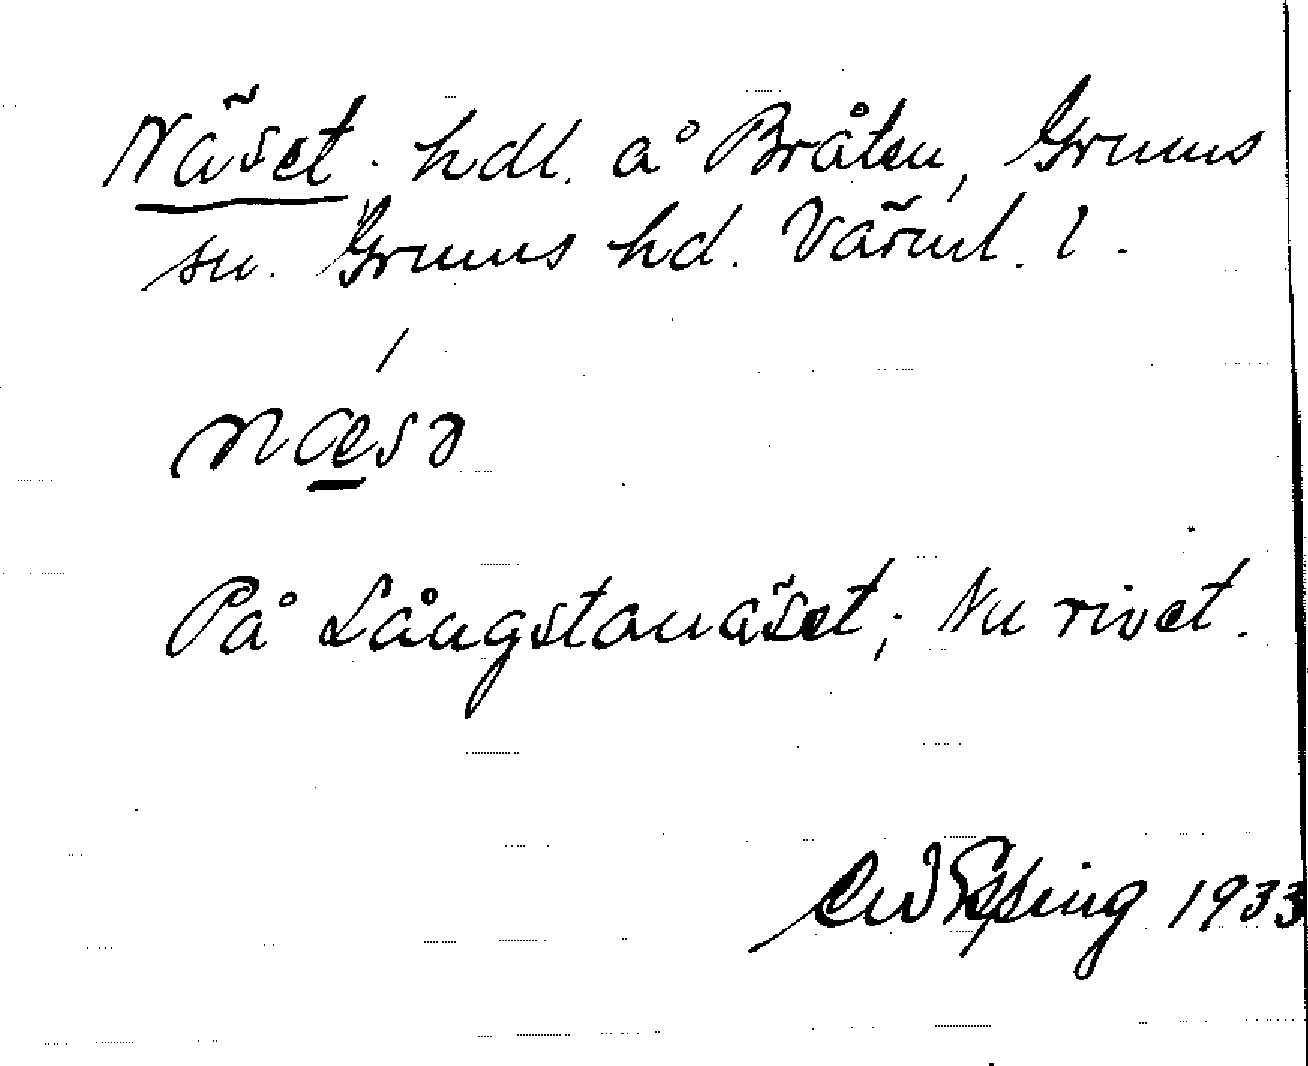 Näset. hdl. å Bråten, Grums
sn. Grums hd. Värml. l.
/
næsə
På Långstanäset; Nu rivet.
1933